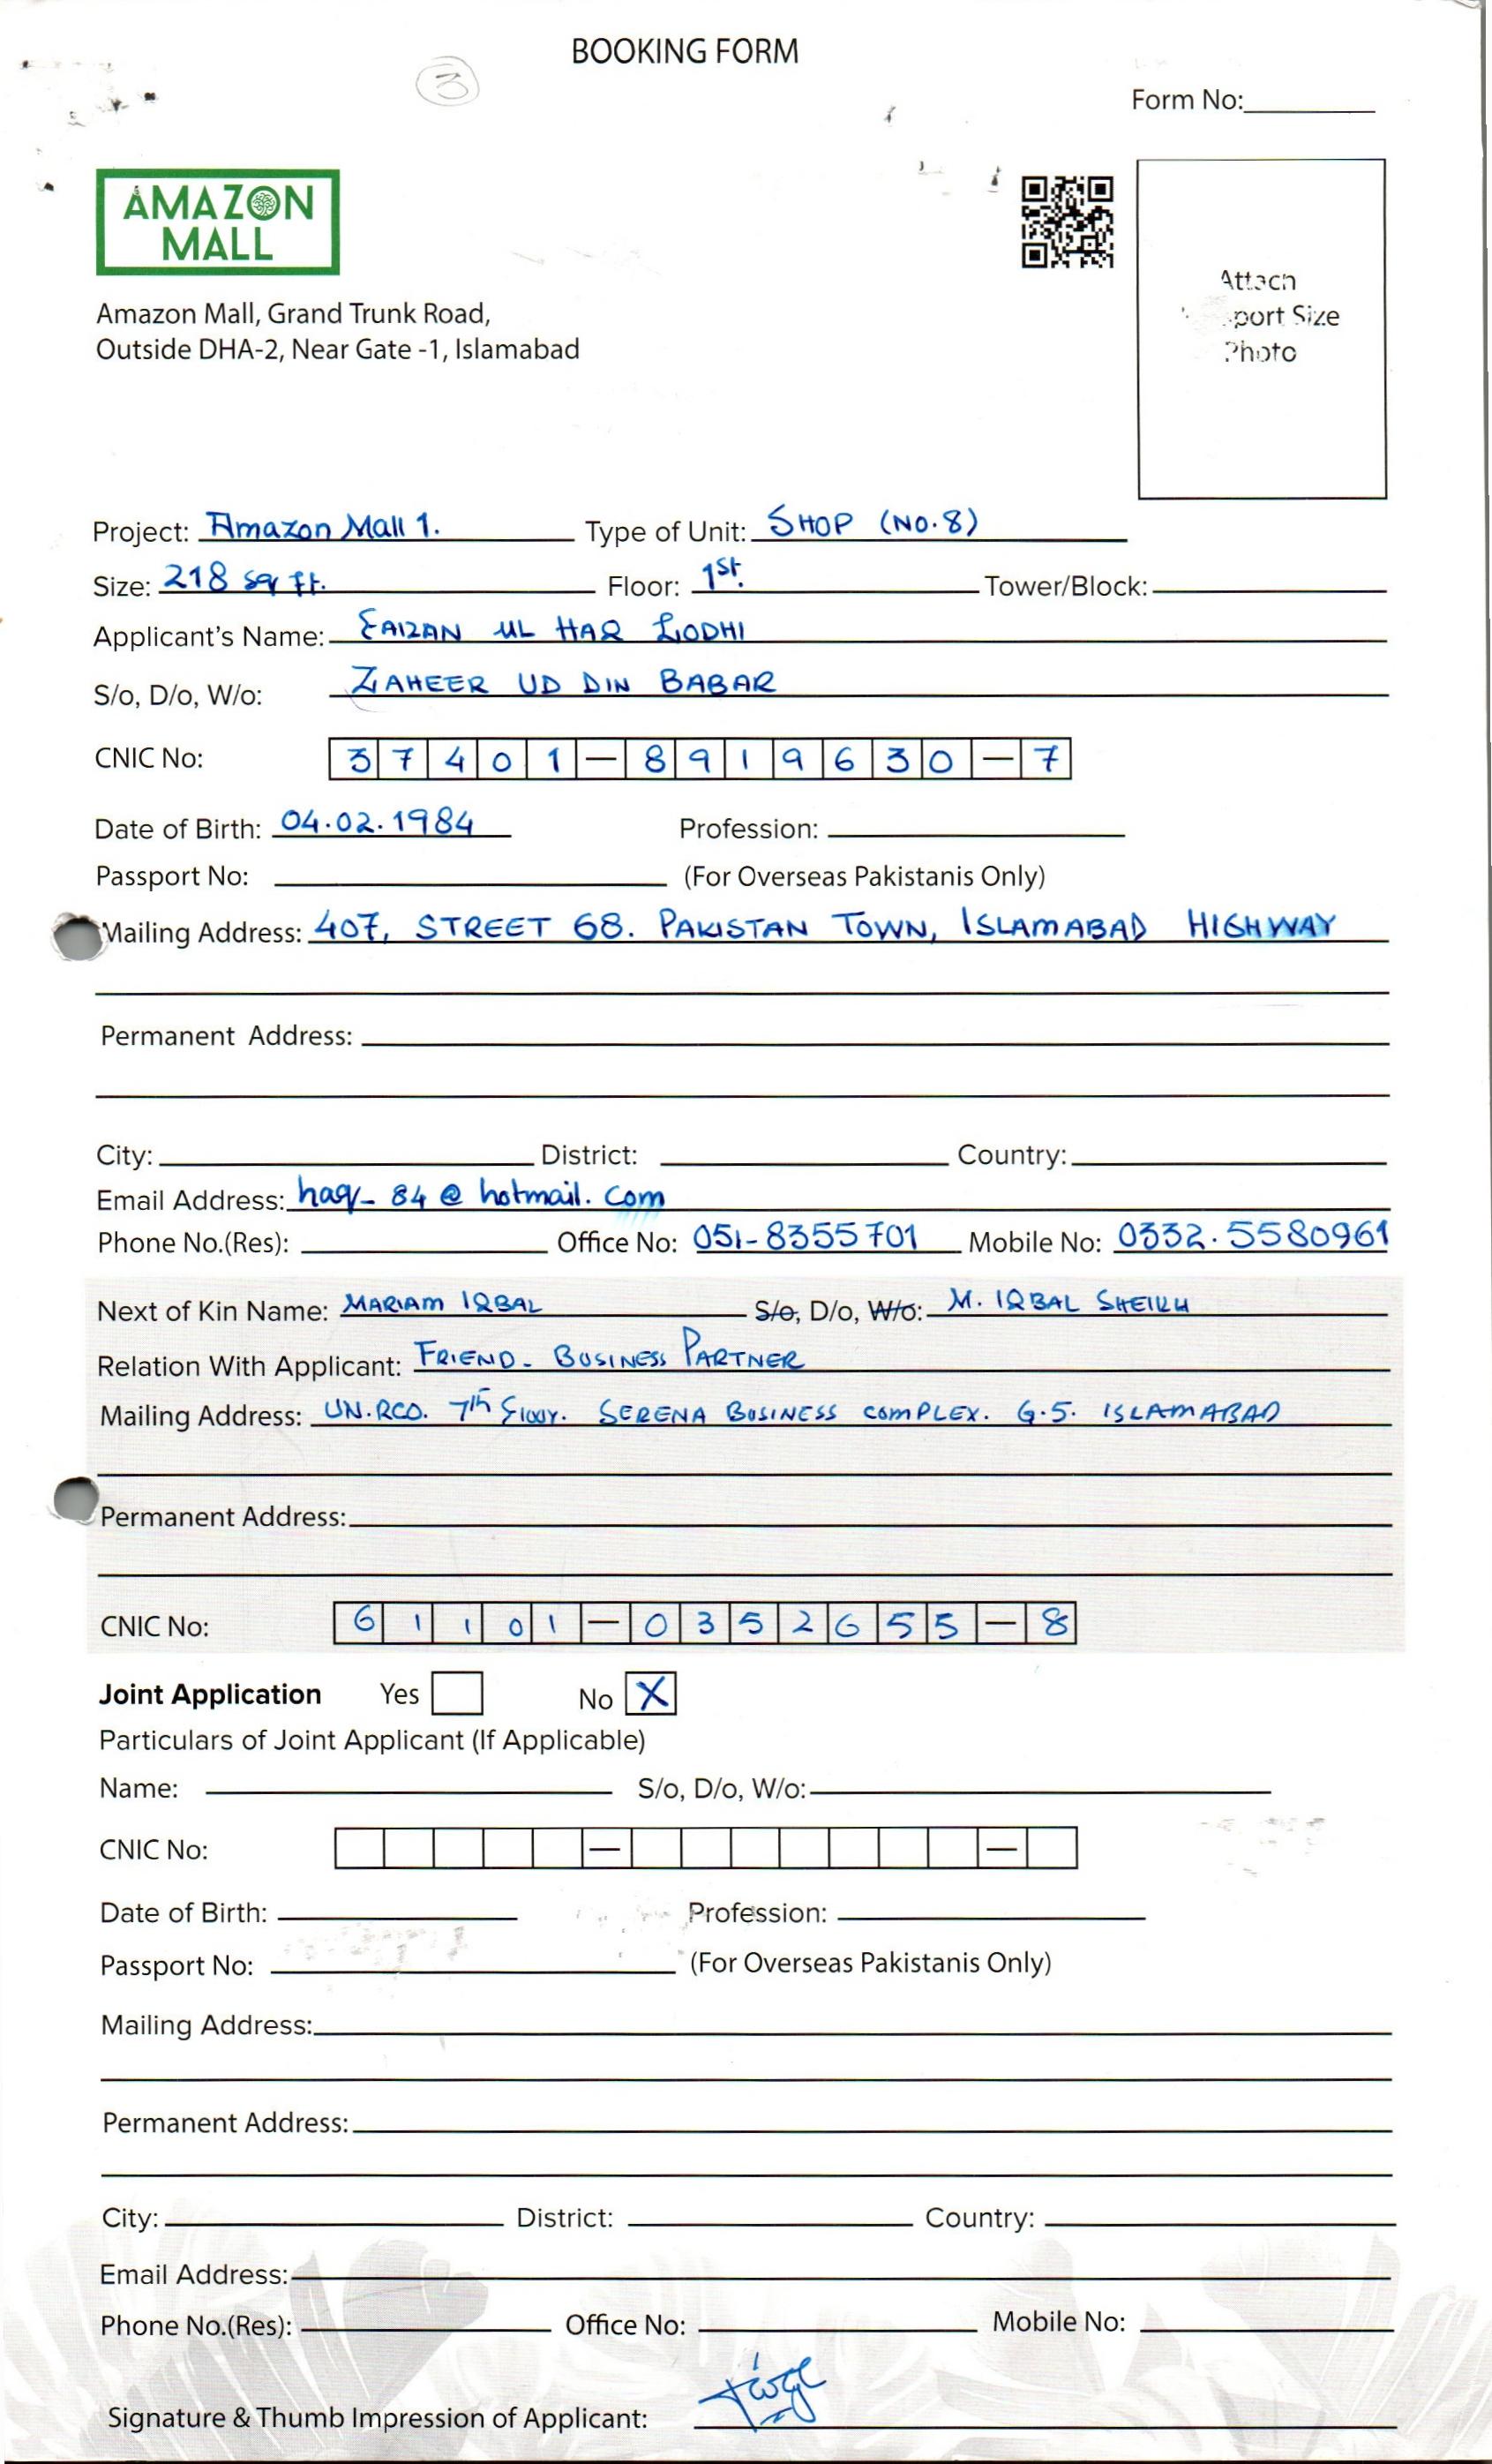 BOOKING FORM
3
Form No:
AMAZON
MALL
Attach
port Size
Photo
Amazon Mall, Grand Trunk Road,
Outside DHA-2, Near Gate -1, Islamabad
Project: Amazon Mall 1. Type of Unit: SHOP (NO.8)
Size: 218 sq ft. Floor: 1st. Tower/Block:
Applicant's Name: FAIZAN UL HAQ LODHI
S/o, D/o, W/o: ZAHEER UD DIN BABAR
CNIC No: 37401-8919630-7
Date of Birth: 04.02.1984 Profession:
Passport No: (For Overseas Pakistanis Only)
Mailing Address: 407, STREET 68. PAKISTAN TOWN, ISLAMABAD HIGHWAY
Permanent Address:
City: District: Country:
Email Address: haq_84@hotmail.com
Phone No.(Res): Office No: 051-8355701 Mobile No: 0332.5580961
Next of Kin Name: MARIAM IQBAL S/o, D/o, W/o: M. IQBAL SHEIKH
Relation With Applicant: FRIEND - BUSINESS PARTNER
Mailing Address: UN.RCO. 7th Floor. SERENA BUSINESS COMPLEX. G.5. ISLAMABAD
Permanent Address:
CNIC No: 61101-0352655-8
Joint Application Yes No X
Particulars of Joint Applicant (If Applicable)
Name: S/o, D/o, W/o:
CNIC No: — —
Date of Birth: Profession:
Passport No: (For Overseas Pakistanis Only)
Mailing Address:
Permanent Address:
City: District: Country:
Email Address:
Phone No.(Res): Office No: Mobile No:
Signature & Thumb Impression of Applicant: